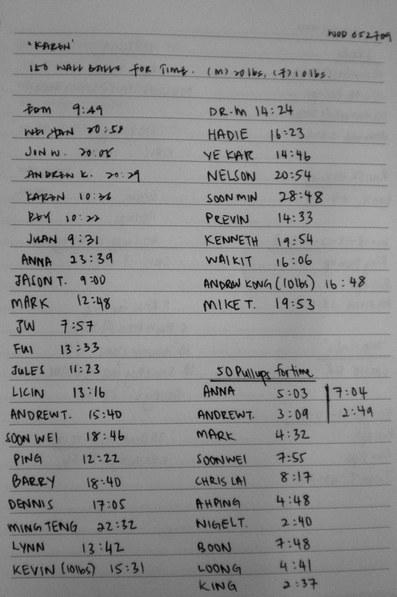 WOD 052709
'KAREN'
150 WALL BALLS FOR TIME. (M) 20 lbs, (F) 10 lbs.
EDM 9:49
WEI HAN 20:58
JON W. 20:05
ANDREW K. 20:29
KAREN 10:26
ROY 10:22
JUAN 9:31
ANNA 23:39
JASON T. 9:00
MARK 12:48
JW 7:57
FUI 13:33
JULES 11:23
LICIN 13:16
ANDREW T. 15:40
SOON WEI 18:46
PING 12:22
BARRY 18:40
DENNIS 17:05
MING TENG 22:32
LYNN 13:42
KEVIN (10lbs) 15:31
DR. M 14:24
HADIE 16:23
YE KAR 14:46
NELSON 20:54
SOON MIN 28:48
PREVIN 14:33
KENNETH 19:54
WAI KIT 16:06
ANDREW KONG (10lbs) 16:48
MIKE T. 19:53
50 Pullups for time
ANNA 5:03 | 7:04
ANDREW T. 3:09 | 2:49
MARK 4:32
SOON WEI 7:55
CHRIS LAI 8:17
AH PING 4:48
NIGEL T. 2:40
BOON 7:48
LOONG 4:41
KING 2:37